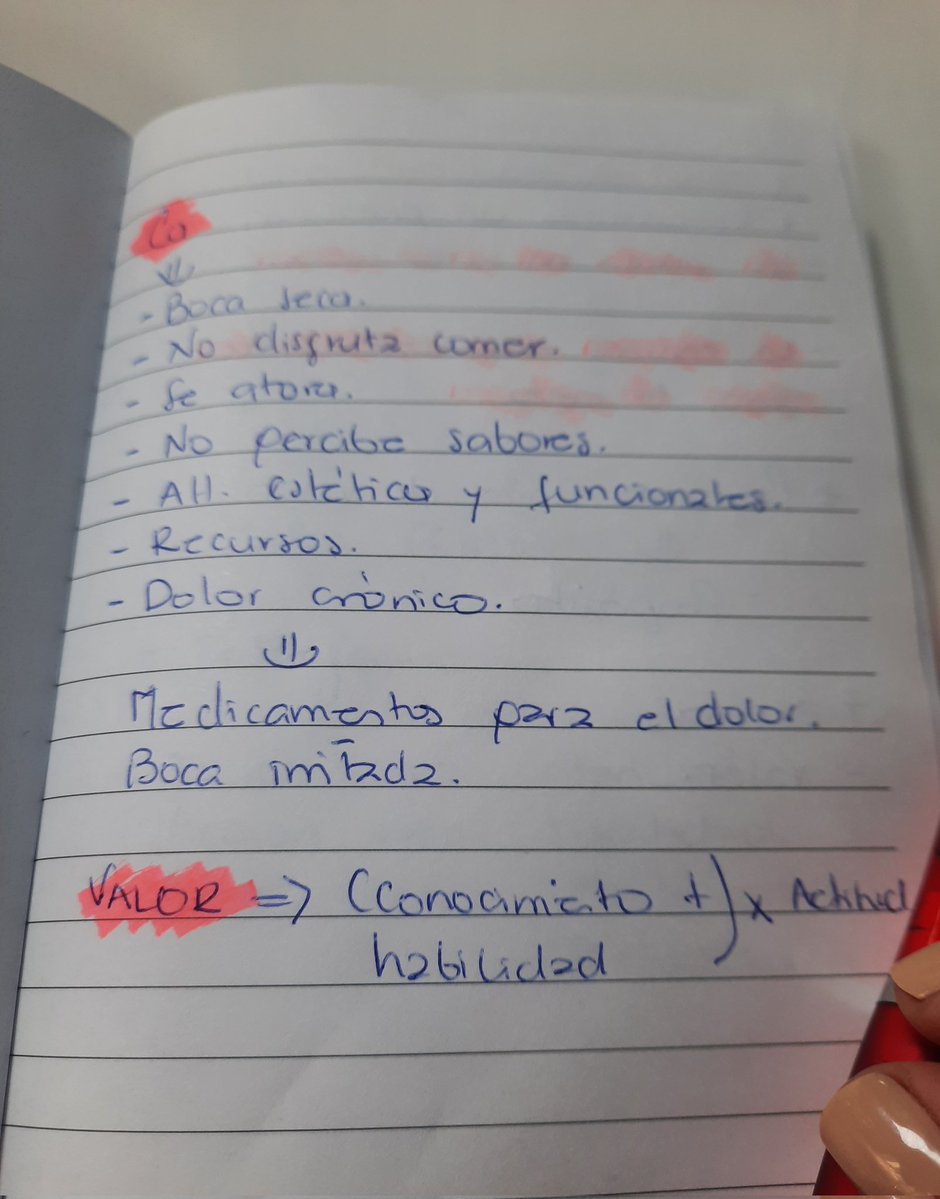 Ca
- Boca seca.
- No disfruta comer.
- Se atora.
- No percibe sabores.
- Alt. estéticas y funcionales.
- Recursos.
- Dolor crónico.
Medicamentos para el dolor.
Boca irritada.
VALOR => (Conocimiento +) x Actitud
habilidad